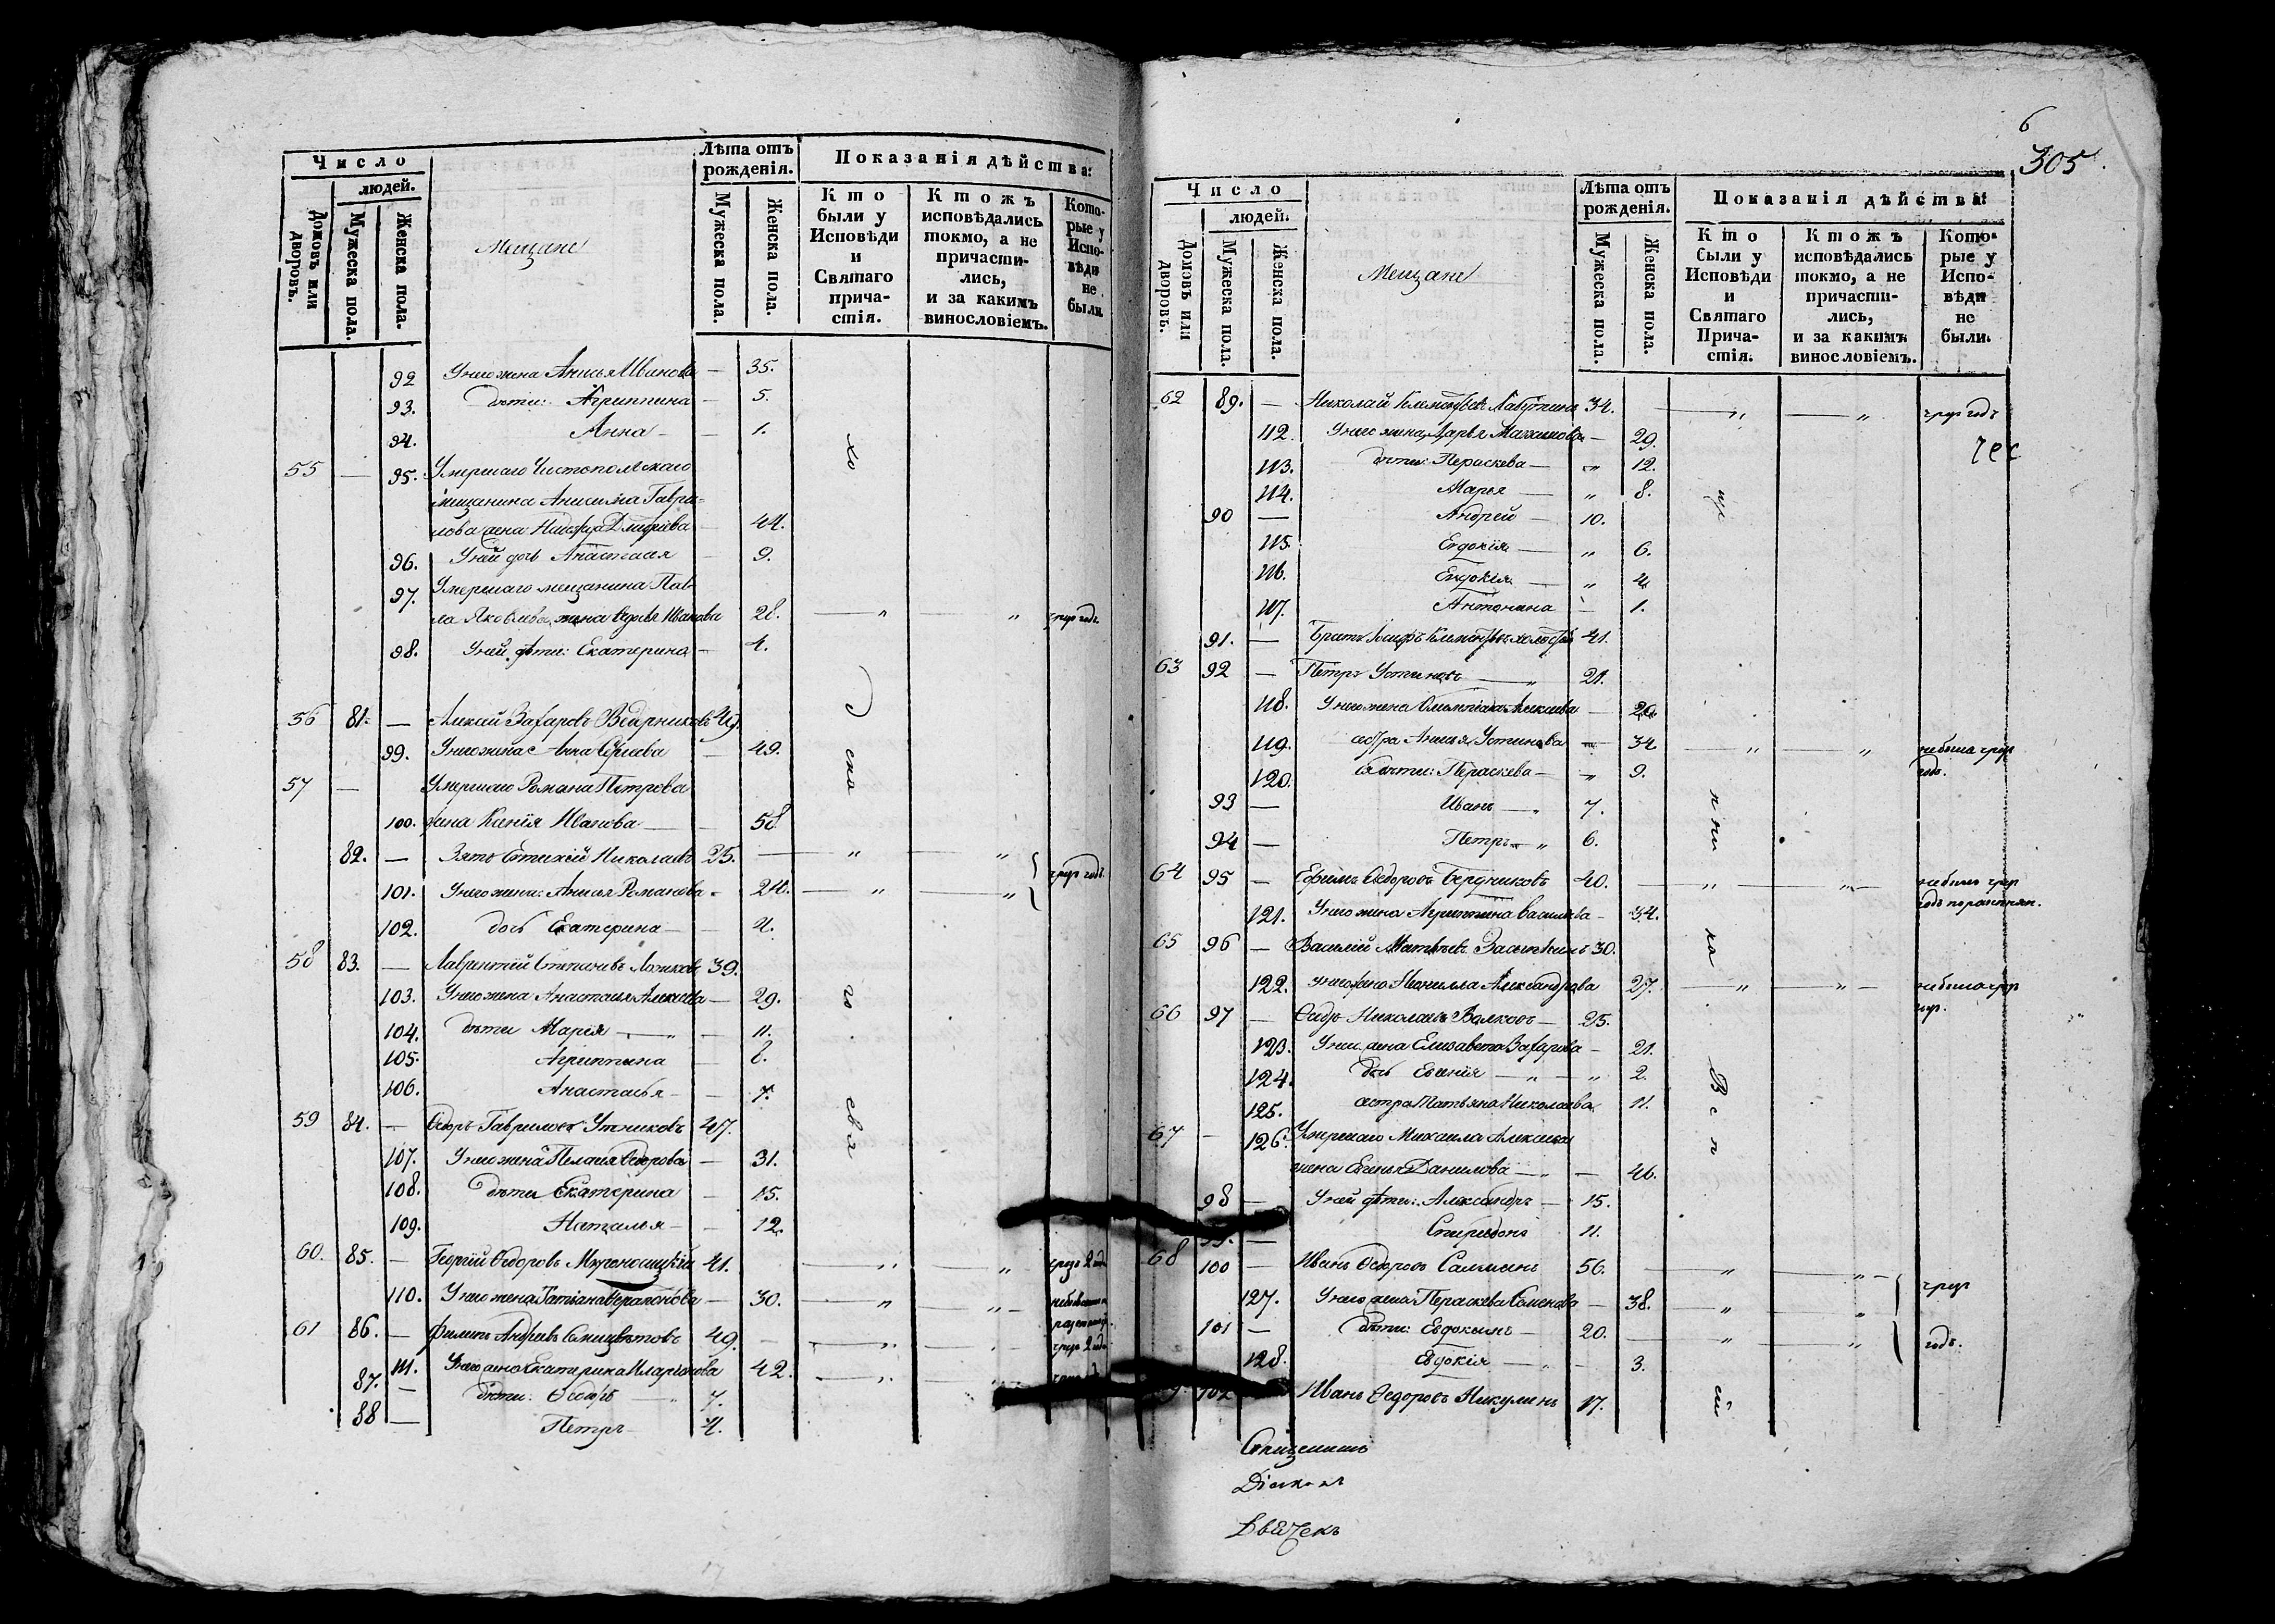 Число
людей.
Домовъ или дворовъ.
Мужеска пола.
Женска пола.
Мещане
Лѣта отъ рожденія.
Мужеска пола.
Женска пола.
Показанія дѣйства:
Кто были у Исповѣди и Святаго прича-стія.
Ктожъ исповѣдались токмо, а не причасти-лись, и за какимъ винословіемъ.
Кото-рые у Испо-вѣди не были.
92 У него жена Анисья Иванова — 35.
93. дѣти: Агриппина — 5.
94. Анна — 1.
55 — 95. Умершаго Чистопольскаго
мещанина Анисима Гаври-
лова жена — 44.
96. У ней дочь Анастасія — 9.
97. Умершаго мещанина Пав-
ла Яковлева жена Ѳедосья Иванова 28. — " — "
98. У ней дѣти: Екатерина — 4.
56 81. — Алексѣй Захаровъ Ведерниковъ 49.
99. У него жена Анна Сергѣева — 49.
57 — Умершаго Романа Петрова
100. жена Ксенія Иванова — 58
82. — Зять Евтихій Николаевъ 25. — " — "
101. У него жена: Анисья Романова — 24. — " — " чрез годъ.
102. дочь Екатерина — 4.
58 83. — Лаврентій Степановъ Ложковъ 39.
103. У него жена Анастасья Алексѣева — 29.
104. дѣти Марія — " — 11.
105. Агриппина — 8.
106. Анастасья — 7.
59 84. — Ѳедоръ Гавриловъ Утниковъ 47.
107. У него жена Пелагія Ѳедорова — 31.
108. дѣти Екатерина — 15.
109. Наталья — 12.
60. 85. — Георгій Ѳедоровъ Мироносицкій 41. — " — "
110. У него жена Татіана Ферапонтова — 30. — " — "
61 86. — Филипъ Андреевъ 49. — "
111. У него жена Екатерина Иларіонова 42. — "
87. — дѣти: Ѳедоръ — " 7.
88 — Петръ — 4.
6
305.
Число
людей.
Домовъ или дворовъ.
Мужеска пола.
Женска пола.
Мещане
Лѣта отъ рожденія.
Мужеска пола.
Женска пола.
Показанія дѣйства:
Кто были у Исповѣди и Святаго Прича-стія.
Ктожъ исповѣдались токмо, а не причасти-лись, и за какимъ винословіемъ.
Кото-рые у Испо-вѣди не были.
62 89. — Николай Климентьевъ Лабутинъ 34. — " — " чрез годъ
112. У него жена Дарья Максимова — 29.
113. дѣти: Параскева — " 12.
114. Марья — " 8.
90 — Андрей — 10.
115. Евдокія — " 6.
116. Евдокія — " 4
117. Антонина — 1.
91. — Братъ Климентьевъ холостой 41.
63 92 — Петръ Устиновъ — " 21.
118. У него жена Алексѣева — 20.
119. сестра Анисья Устинова — 34 — " — "
120. дѣти: Параскева — " 9.
93 — Иванъ — " 7.
94 — Петръ — " 6.
64 95 — Ефимъ Ѳедоровъ Бердниковъ 40. — " — "
121. У него жена Агриппина Васильева — 34.
65 96 — Василій Матвѣевъ 30.
122. у него жена Неонилла Александрова 27. — " — "
66 97 — Ѳедоръ Николаевъ Волковъ — 25.
123. У него жена Елисавета Захарова — 21.
124. дочь Евгенія — " — " 2.
125. сестра Татьяна Николаева 11.
67 — 126. Умершаго Михаила Алексѣева
жена Евгенья Данилова — " — 46.
98 — У ней дѣти: Александръ — 15.
99. — Спиридонъ 11.
68 100 — Иванъ Ѳедоровъ Салминъ 56. — " — "
127. У него жена Параскева Семенова — 38. — " " чрез
101 — дѣти: Евдокимъ — 20. — " — " годъ.
128. Евдокія — 3.
102 Иванъ Ѳедоровъ Никулинъ 17.